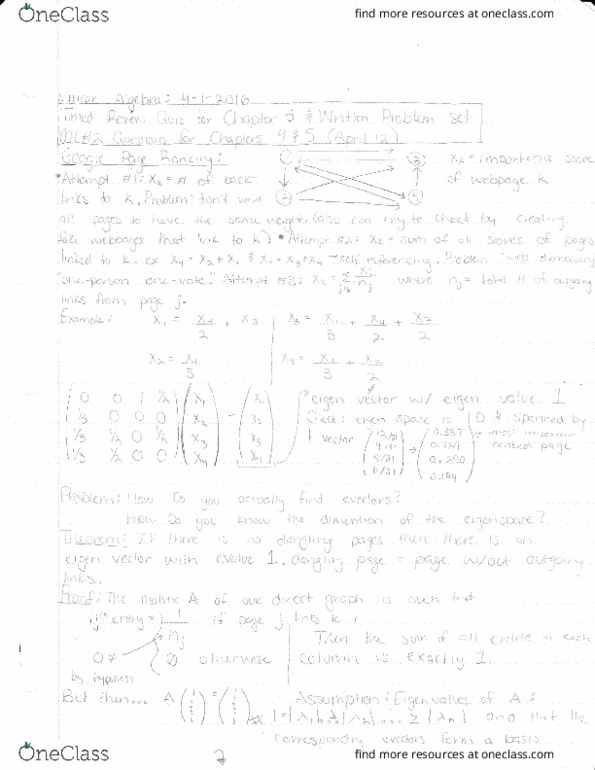 OneClass
find more resources at oneclass.com
Linear Algebra: 4-1-2016
Timed Review Quiz for Chapter 5 & Written Problem Set
MT#2 Questions for Chapters 4 & 5 (April 12)
Google Page Ranking:
1 3 Xk = importance score
• Attempt #1: Xk = # of back- of webpage k
links to k. Problem: don't want 2 4
all pages to have the same weight (also can try to cheat by creating
fake webpages that link to k) • Attempt #2: Xk = sum of all scores of pages
linked to k. ex X4 = X2 + X1 & X1 = X3 + X4 → self referencing. Problem "web democracy
"one-person one-vote." Attempt #3: Xk = Σ Xj/nj where nj = total # of outgoing
links from page j.
Example: X1 = X4/2 + X3 X3 = X1/3 + X4/2 + X2/2
X2 = X1/3 X4 = X1/3 + X2/2
0 0 1 1/2 X1 = X1 eigen vector w/ eigen value 1
1/3 0 0 0 X2 X2 eigen space is 1D & spanned by
1/3 1/2 0 1/2 X3 X3 1 vector 12/31 4/31 9/31 6/31 → 0.387 0.129 0.290 0.194 most important ranked page
1/3 1/2 0 0 X4 X4
Problem: How Do you actually find evectors?
How Do you know the dimention of the eigenspace?
Theorem: If there is no dangling pages then there is an
eigen vector with evalue 1. dangling page = page w/out outgoing
links.
Proof: The matrix A of our direct graph is such that
ijth entry = 1/nj if page j links to i Then the sum of all entries in each
0≠ 0 otherwise column is exactly 1.
by hypothesis
But then... A (1 1 1 1) = (1 1 1 1) Assumption: Eigenvalues of A:
1 = |λ1| ≥ |λ2| ... ≥ |λn| and that the
corresponding evectors form a basis
2
OneClass
find more resources at oneclass.com